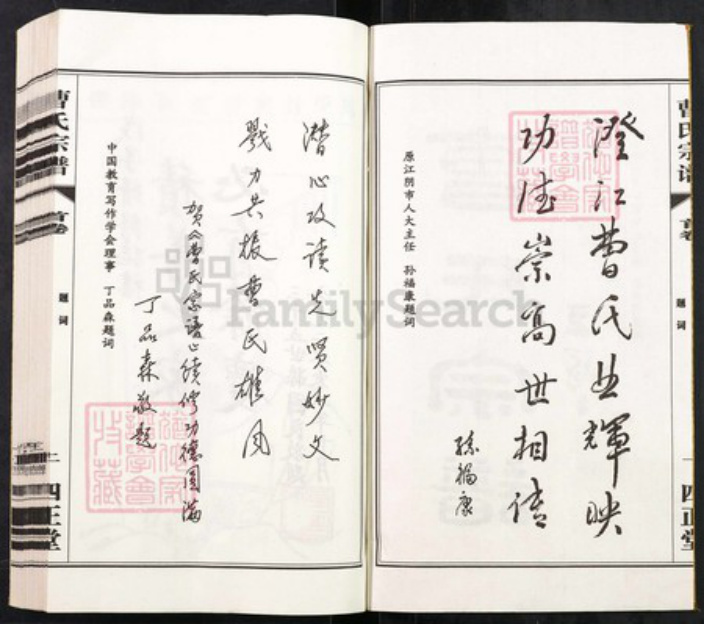 曹氏宗谱
首卷
题词
一
四正堂
澄江曹氏輝映
功德崇高世相传
孫福康
原江阴市人大主任 孙福康题词
FamilySearch
潜心攻读先贤妙文
戮力共振曹氏雄风
贺《曹氏宗谱》续修功德圆满
丁品森敬题
中国教育写作学会理事 丁品森题词
曹氏宗谱
首卷
题词
一
四正堂